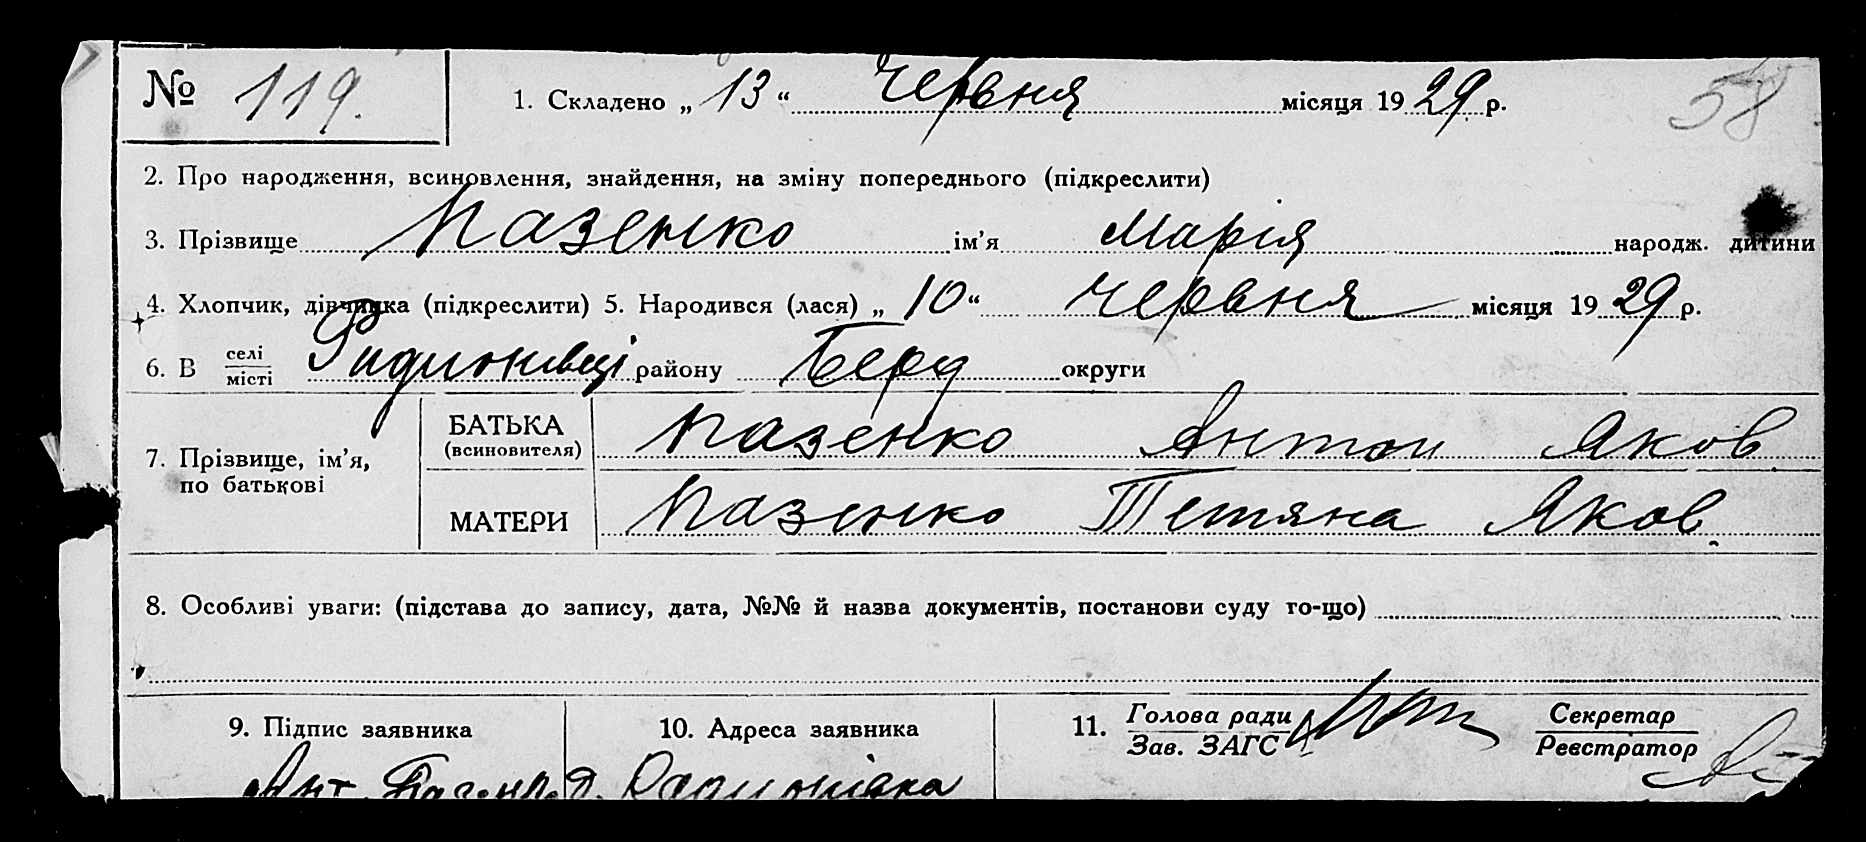 № 119. 1. Складено „ 13 “ Червня місяця 19 29 р. 58
2. Про народження, всиновлення, знайдення, на зміну попереднього (підкреслити)
3. Прізвище Пазенко ім’я Марія народж. дитини
4. Хлопчик, дівчинка (підкреслити) 5. Народився (лася) „ 10 “ червня місяця 19 29 р.
6. В селі місті району Берд округи
7. Прізвище, ім’я, по батькові
БАТЬКА (всиновителя) Пазенко Антон Яков
МАТЕРИ Пазенко Тетяна Яков.
8. Особливі уваги: (підстава до запису, дата, №№ й назва документів, постанови суду то-що)
9. Підпис заявника 10. Адреса заявника 11. Голова ради Зав. ЗАГС Секретар Реєстратор
Ант.